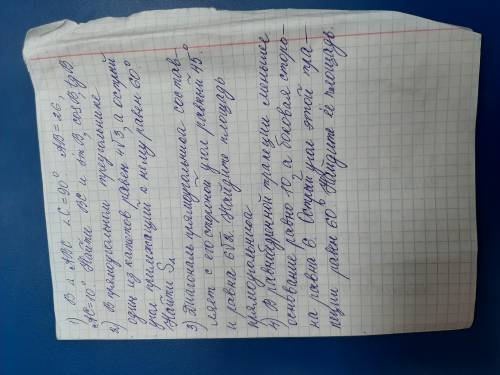 1) В Δ АВС ∠С=90° АВ=26,
АС=10. Найти ВС и sin В, cos В, tg В.
2) В прямоугольном треугольнике
один из катетов равен 4√3, а острый
угол прилежащий к нему равен 60°.
Найти S
3) Диагональ прямоугольника состав-
ляет с его стороной угол равный 45°
и равна 6√2. Найдите площадь
прямоугольника
4) В равнобедренной трапеции меньшее
основание равно 10, а боковая сторо-
на равна 6. Острый угол этой тра-
пеции равен 60°. Найдите её площадь.